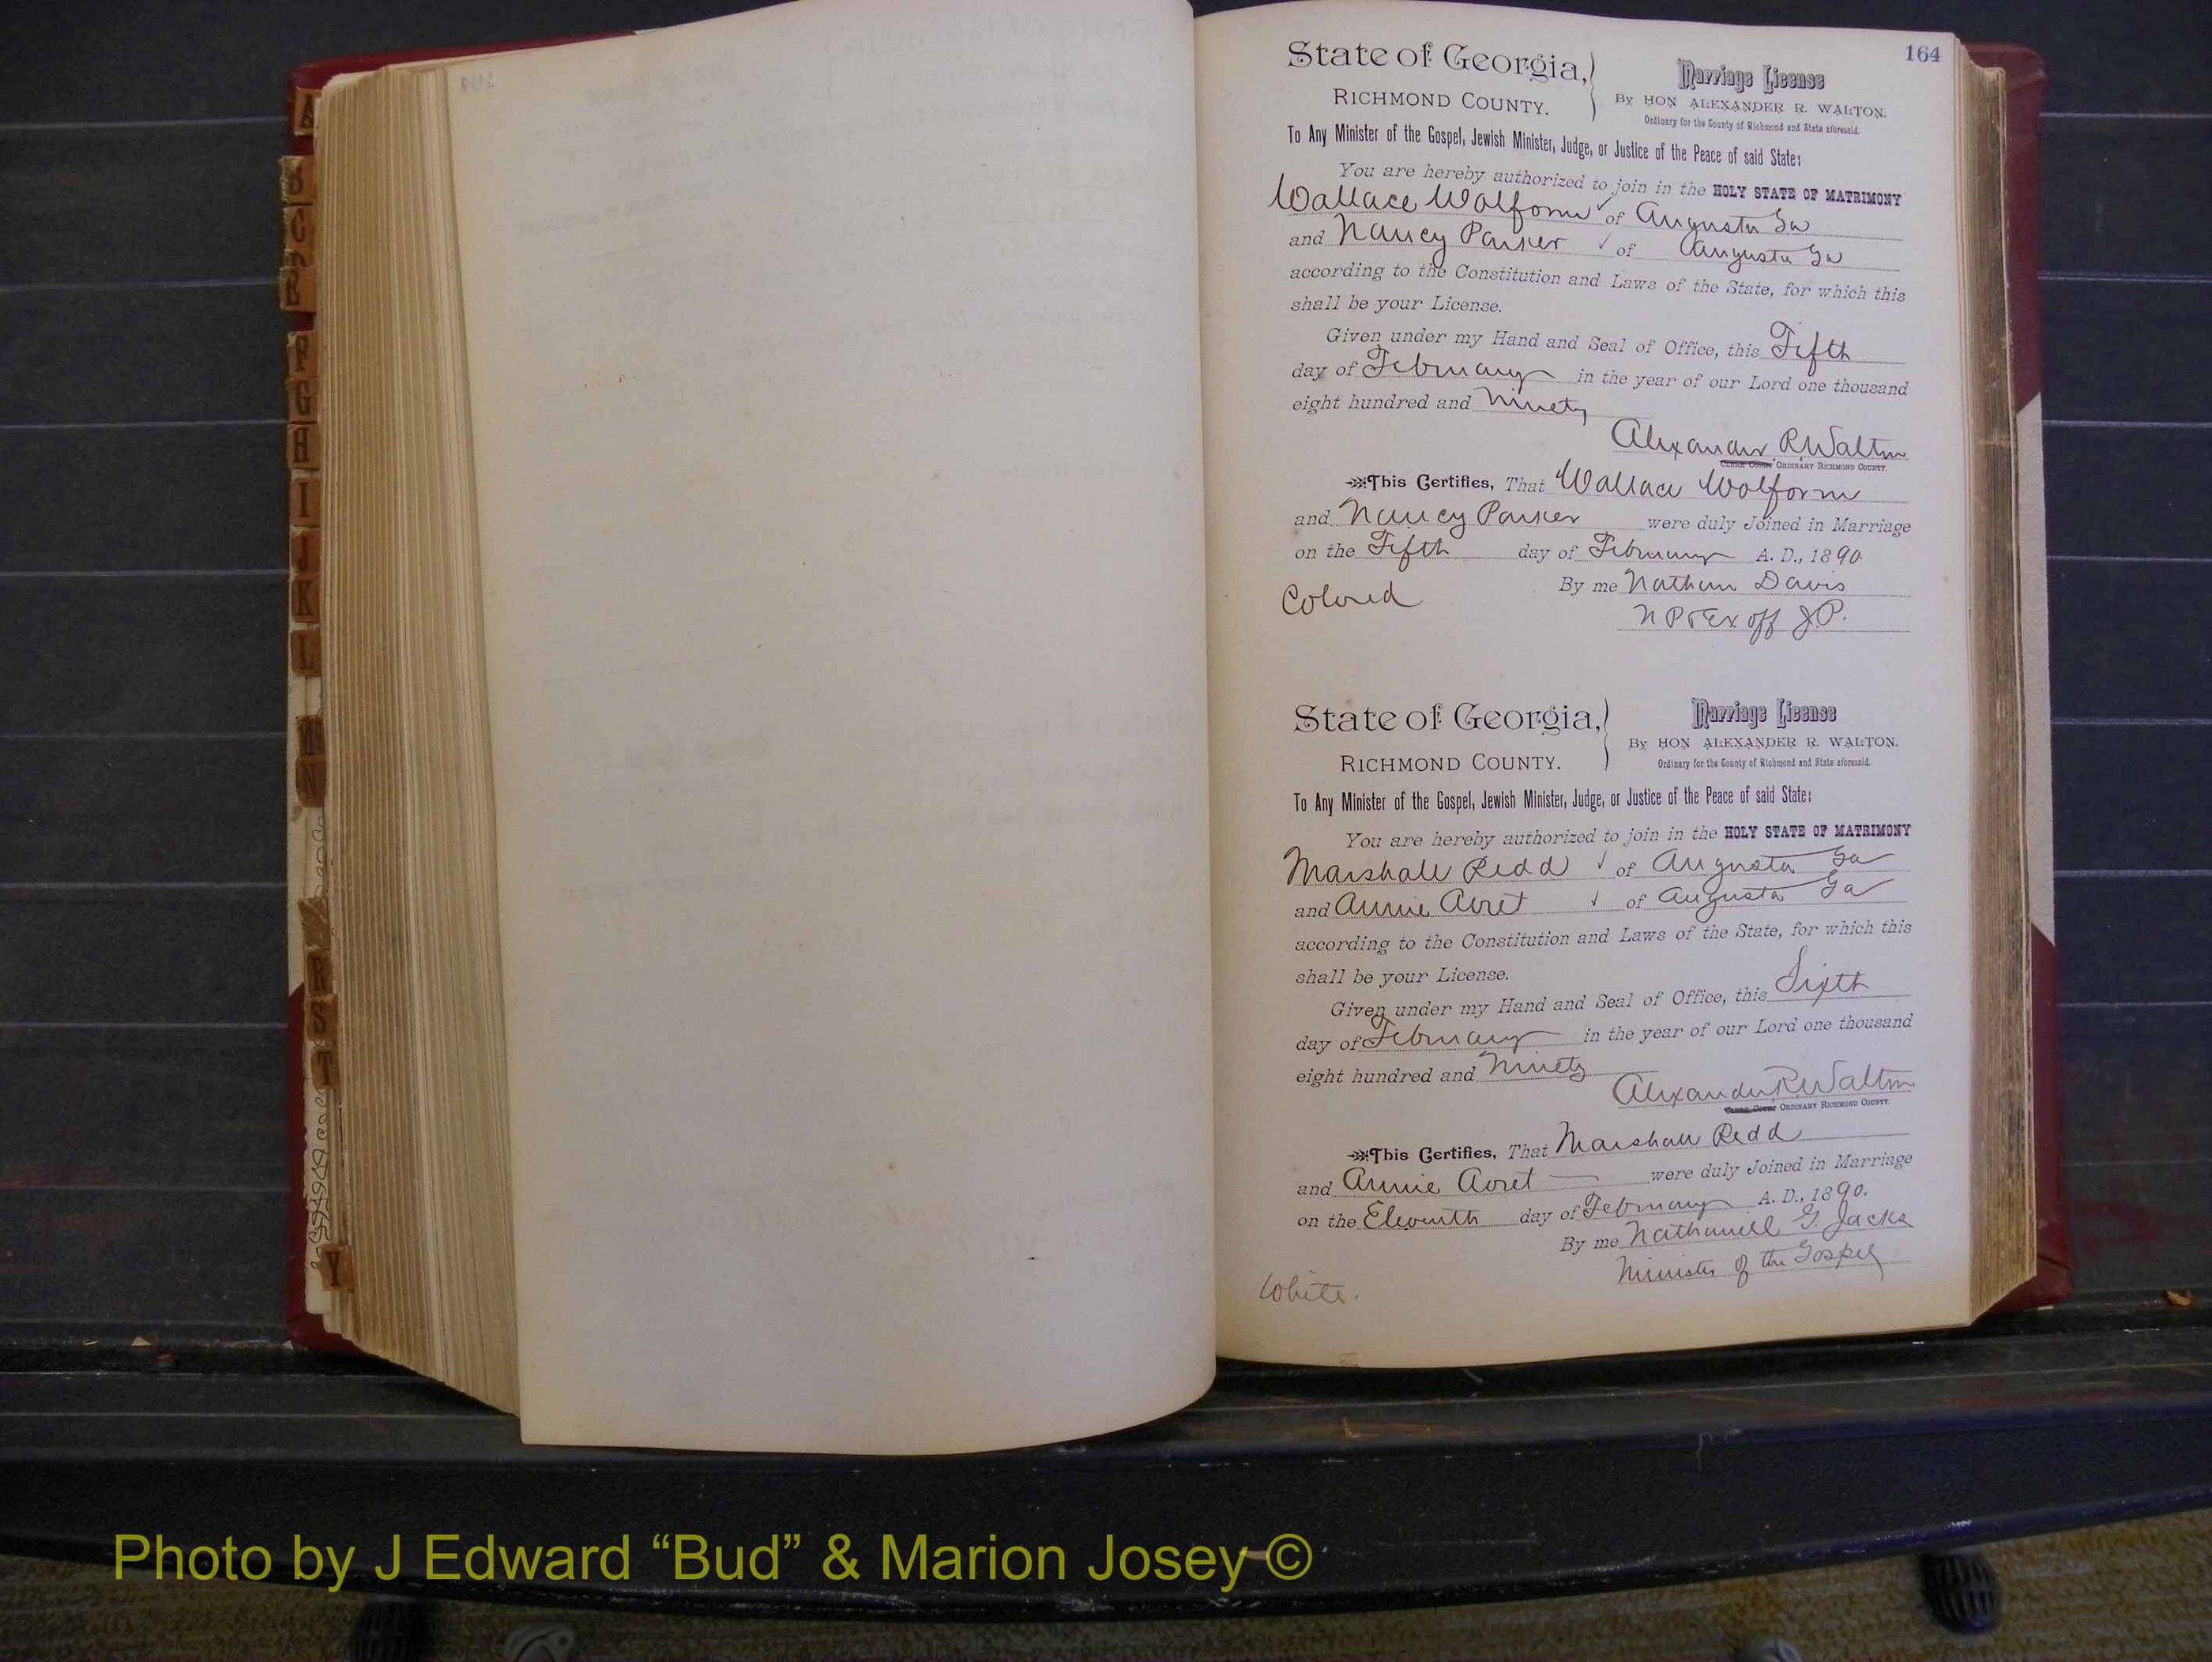 164
State of Georgia,
RICHMOND COUNTY.
Marriage License
By HON ALEXANDER R. WALTON.
Ordinary for the County of Richmond and State aforesaid.
To Any Minister of the Gospel, Jewish Minister, Judge, or Justice of the Peace of said State:
You are hereby authorized to join in the HOLY STATE OF MATRIMONY
Wallace Wolform ✓ of Augusta Ga
and Nancy Parker ✓ of Augusta Ga
according to the Constitution and Laws of the State, for which this
shall be your License.
Given under my Hand and Seal of Office, this Fifth
day of February in the year of our Lord one thousand
eight hundred and Ninety
Alexander R Walton
ORDINARY RICHMOND COUNTY.
This Certifies, That Wallace Wolform
and Nancy Parker were duly Joined in Marriage
on the Fifth day of February A. D., 1890
By me Nathan Davis
Colored
N P & Ex off J.P.
State of Georgia,
RICHMOND COUNTY.
Marriage License
By HON ALEXANDER R. WALTON.
Ordinary for the County of Richmond and State aforesaid.
To Any Minister of the Gospel, Jewish Minister, Judge, or Justice of the Peace of said State:
You are hereby authorized to join in the HOLY STATE OF MATRIMONY
Marshall Redd ✓ of Augusta Ga
and Annie Avret ✓ of Augusta Ga
according to the Constitution and Laws of the State, for which this
shall be your License.
Given under my Hand and Seal of Office, this Sixth
day of February in the year of our Lord one thousand
eight hundred and Ninety
Alexander R Walton
ORDINARY RICHMOND COUNTY.
This Certifies, That Marshall Redd
and Annie Avret were duly Joined in Marriage
on the Eleventh day of February A. D., 1890.
By me Nathaniell G. Jacks
Minister of the Gospel
White.
A
B
C
E
F
G
H
I
J
K
L
M
N
R
S
T
Y
Photo by J Edward “Bud” & Marion Josey ©